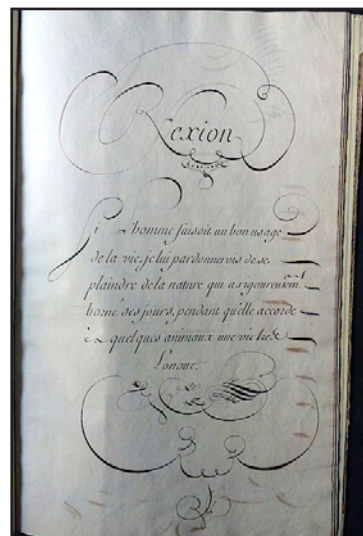 Rexion
Si L'homme faisoit un bon usage
de la vie, je lui pardonnerois de se
plaindre de la nature qui a si rigoureusem.t
borné ses jours, pendant qu'elle accorde
a quelques animaux une vie tres
Longue.